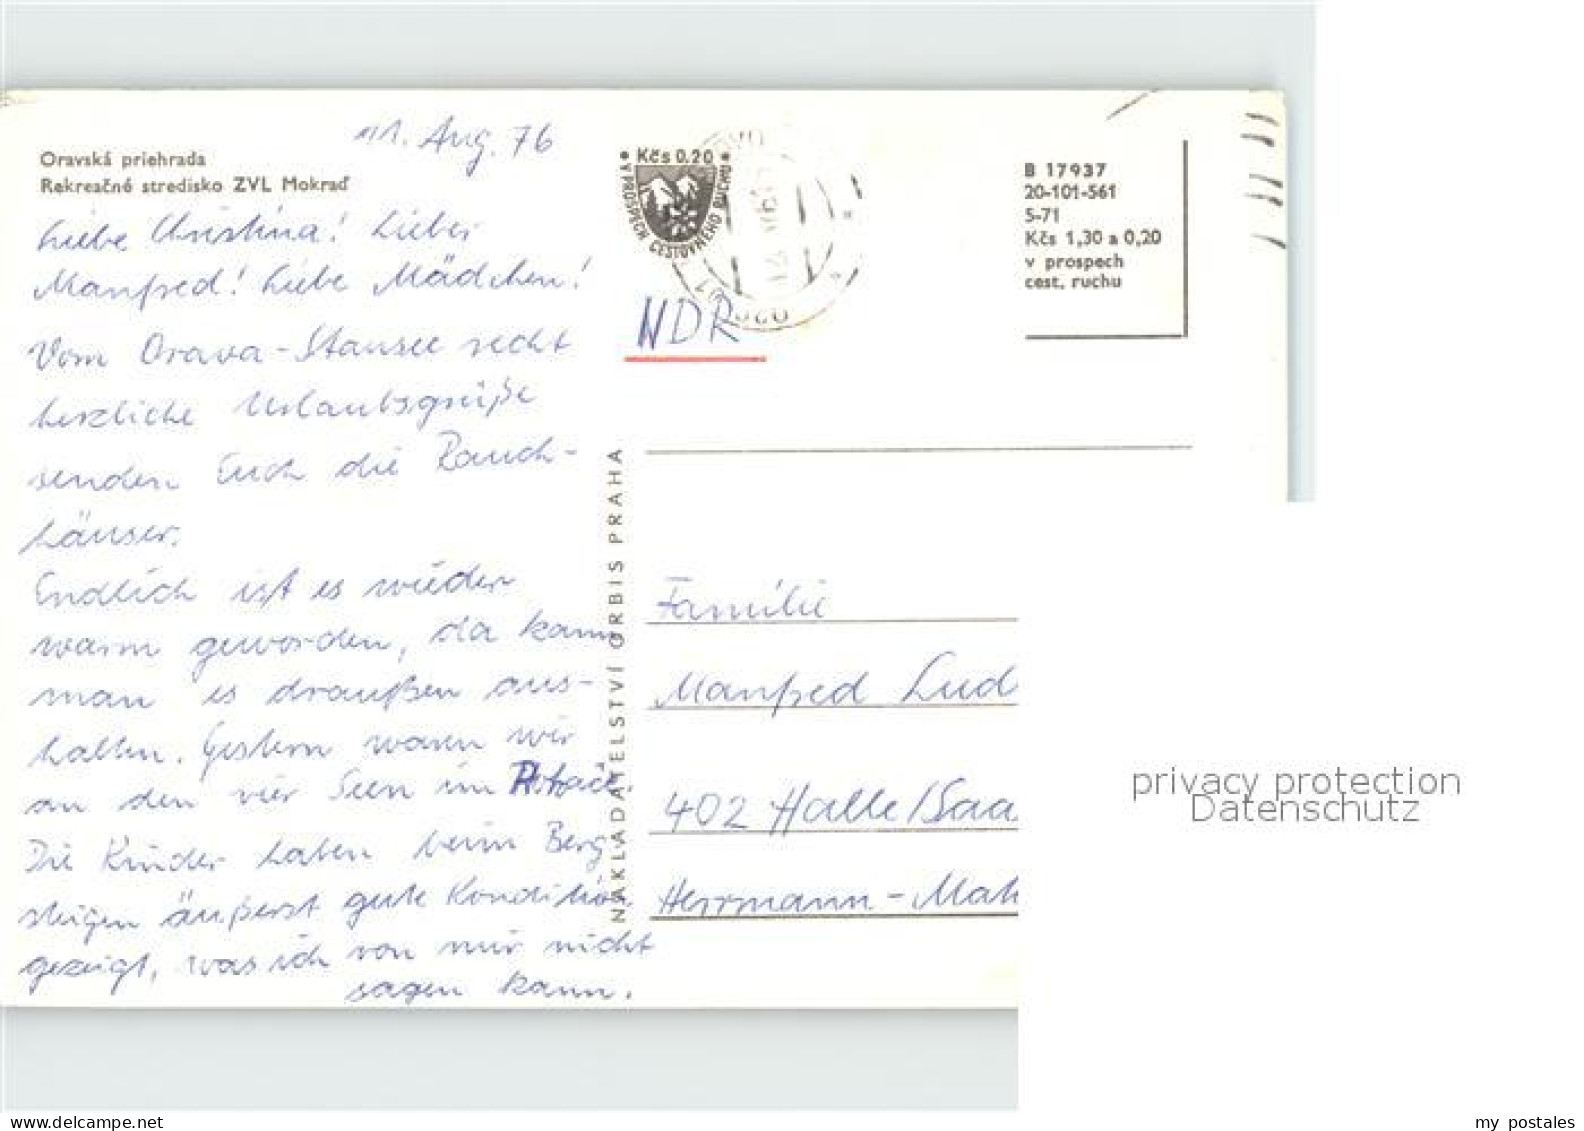 11. Aug. 76
Oravská priehrada
Rekreačné stredisko ZVL Mokraď
Liebe Christina! Lieber
Manfred! Liebe Mädchen!
Vom Orava-Stausee recht
herzliche Urlaubsgrüße
senden Euch die Rauch-
häuser.
Endlich ist es wieder
warm geworden, da kann
man es draußen aus-
halten. Gestern waren wir
an den vier Seen im
Die Kinder haben beim Berg
steigen äußerst gute Kondition
gezeigt, was ich von mir nicht
sagen kann.
• Kčs 0.20 •
V PROSPECH CESTOVNÉHO RUCHU
NDR
B 17937
20-101-561
5-71
Kčs 1,30 a 0,20
v prospech
cest. ruchu
NAKLADATELSTVÍ ORBIS PRAHA
Familie
Manfred Lud
402 Halle/Saa
Herrmann-Mat
privacy protection
Datenschutz
www.delcampe.net
my postales